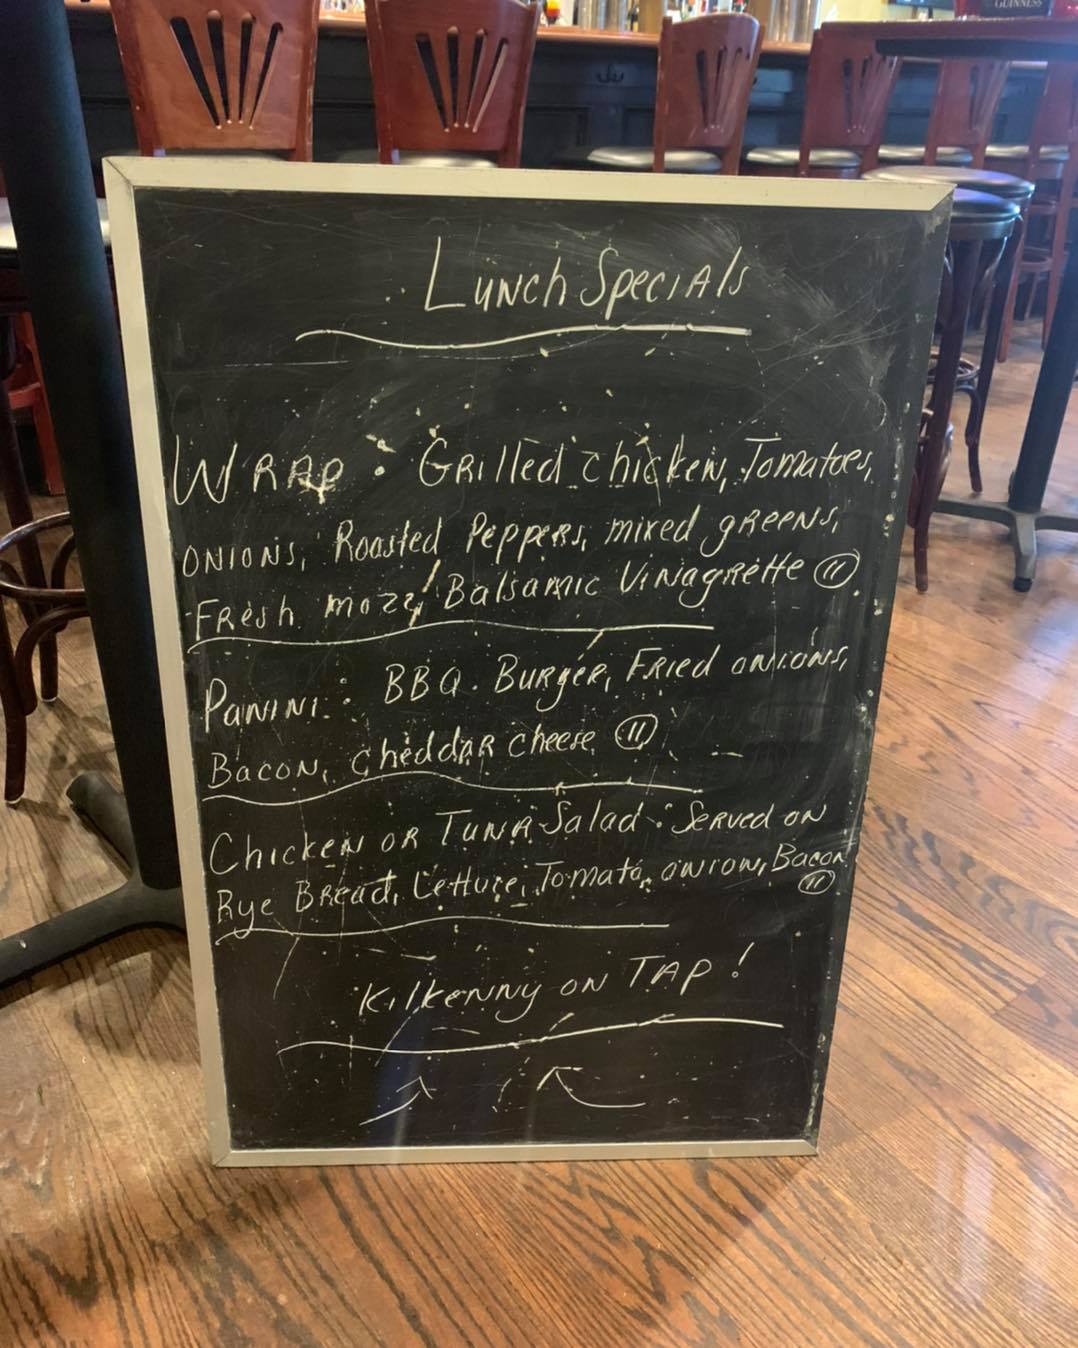 GUINNESS
Lunch Specials
Wrap: Grilled Chicken, Tomatoes,
onions, Roasted Peppers, mixed greens,
Fresh mozz, Balsamic Vinagrette 11
Panini: BBQ. Burger, Fried onions,
Bacon, cheddar cheese 11
Chicken or Tuna Salad: Served on
Rye Bread, Lettuce, Tomato, onion, Bacon
11
Kilkenny on Tap!